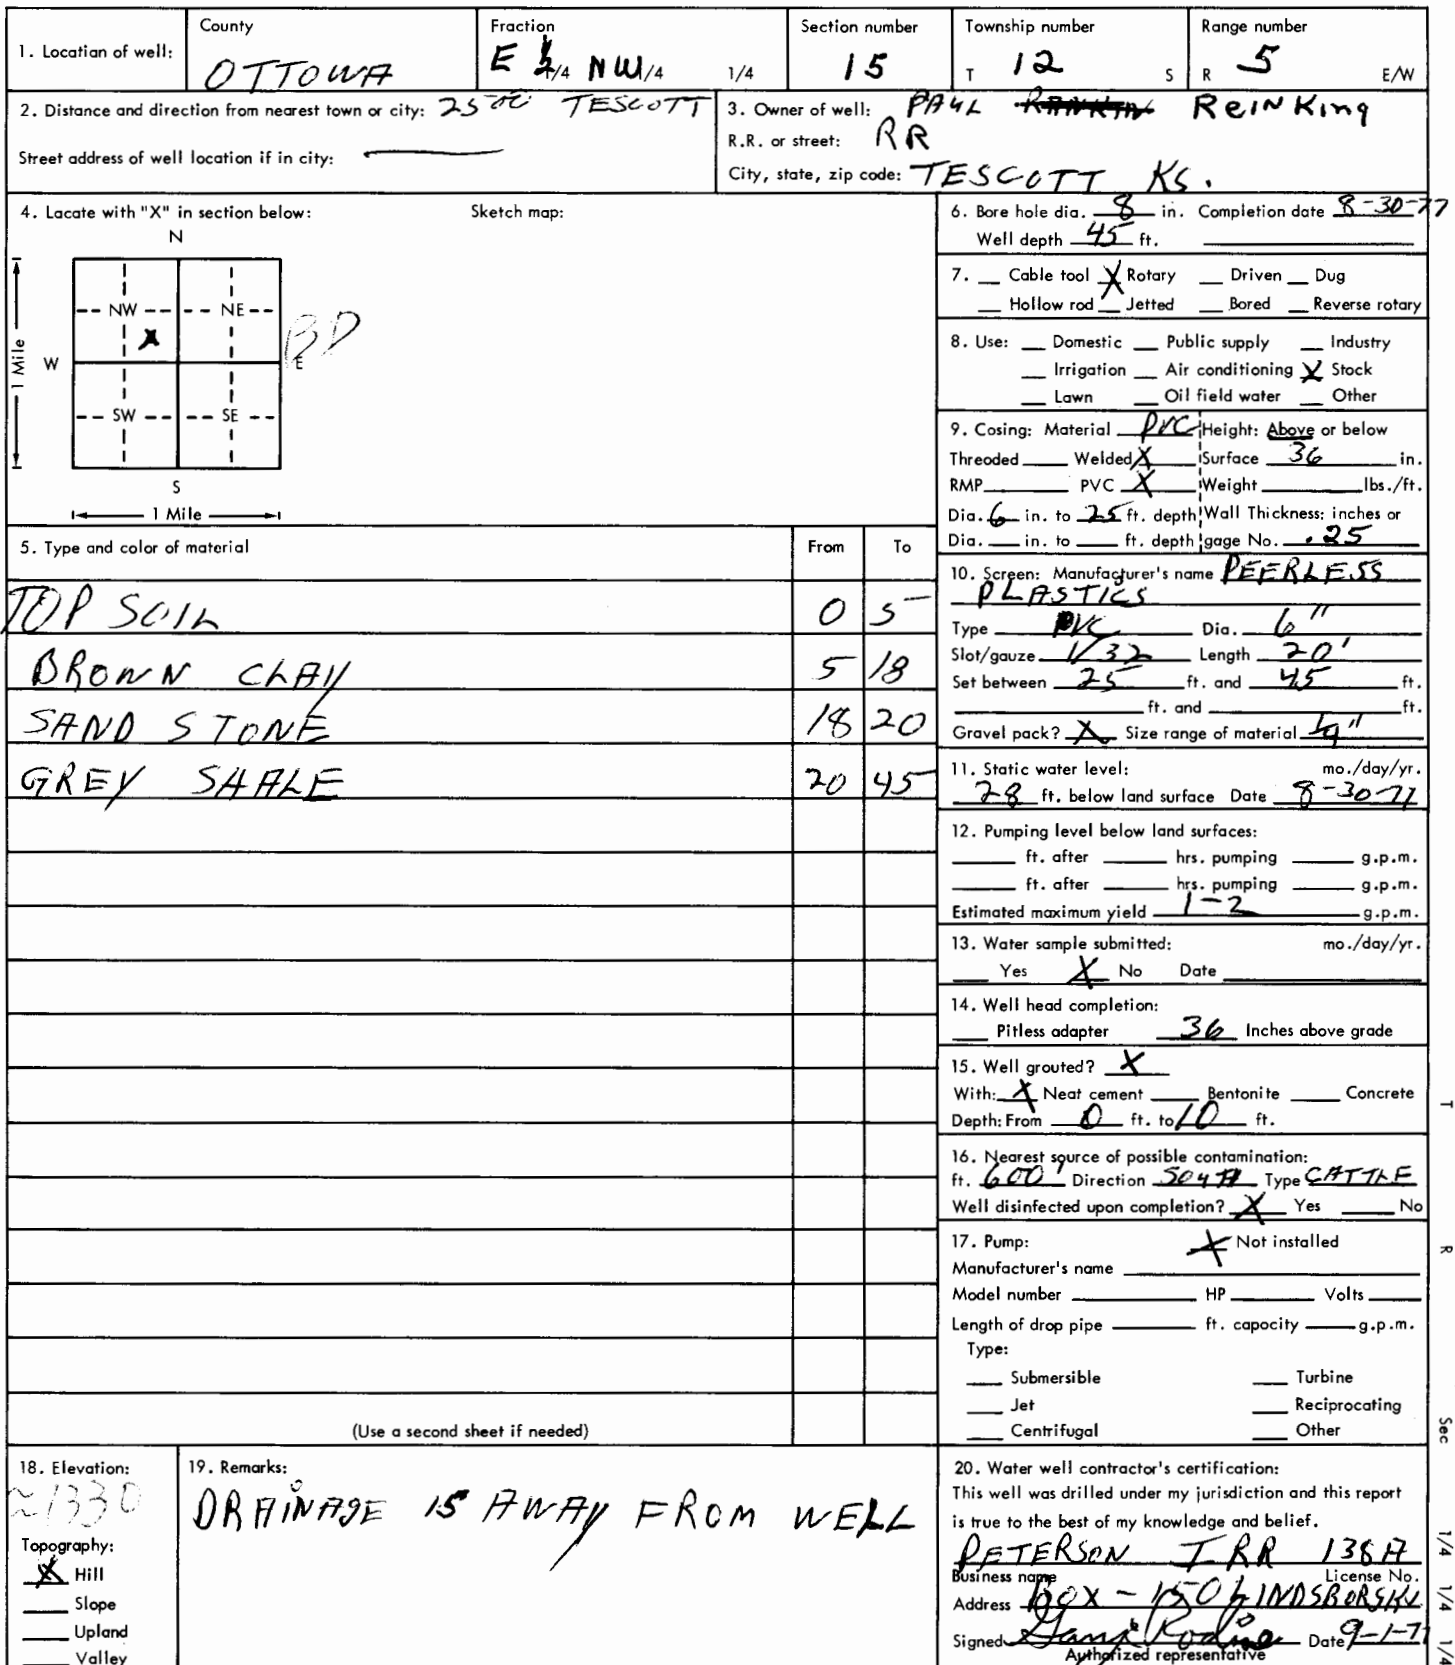 1. Location of well: County OTTOWA Fraction E ½ 1/4 NW 1/4 1/4 Section number 15 Township number T 12 S Range number R 5 E/W
2. Distance and direction from nearest town or city: TESCOTT
Street address of well location if in city: —
3. Owner of well: PAUL ReinKing
R.R. or street: RR
City, state, zip code: TESCOTT KS.
4. Locate with "X" in section below: Sketch map:
N
NW NE
X
1 Mile W E BD
SW SE
S
1 Mile
5. Type and color of material From To
TOP SOIL 0 5
BROWN CLAY 5 18
SAND STONE 18 20
GREY SHALE 20 45
(Use a second sheet if needed)
6. Bore hole dia. 8 in. Completion date 8-30-77
Well depth 45 ft.
7. Cable tool X Rotary Driven Dug
Hollow rod Jetted Bored Reverse rotary
8. Use: Domestic Public supply Industry
Irrigation Air conditioning X Stock
Lawn Oil field water Other
9. Cosing: Material PVC Height: Above or below
Threoded Welded X Surface 36 in.
RMP PVC X Weight lbs./ft.
Dia. 6 in. to 25 ft. depth Wall Thickness: inches or
Dia. in. to ft. depth gage No. .25
10. Screen: Manufacturer's name PEERLESS
PLASTICS
Type PVC Dia. 6"
Slot/gauze 1/32 Length 20'
Set between 25 ft. and 45 ft.
ft. and ft.
Gravel pack? X Size range of material 1/4"
11. Static water level: mo./day/yr.
28 ft. below land surface Date 8-30-77
12. Pumping level below land surfaces:
ft. after hrs. pumping g.p.m.
ft. after hrs. pumping g.p.m.
Estimated maximum yield 1-2 g.p.m.
13. Water sample submitted: mo./day/yr.
Yes X No Date
14. Well head completion:
Pitless adapter 36 Inches above grade
15. Well grouted? X
With: X Neat cement Bentonite Concrete
Depth: From 0 ft. to 10 ft.
16. Nearest source of possible contamination:
ft. 600' Direction SOUTH Type CATTLE
Well disinfected upon completion? X Yes No
17. Pump: X Not installed
Manufacturer's name
Model number HP Volts
Length of drop pipe ft. capocity g.p.m.
Type:
Submersible Turbine
Jet Reciprocating
Centrifugal Other
18. Elevation:
~1330
Topography:
X Hill
Slope
Upland
Valley
19. Remarks:
DRAINAGE IS AWAY FROM WELL
20. Water well contractor's certification:
This well was drilled under my jurisdiction and this report
is true to the best of my knowledge and belief.
PETERSON IRR 138A
Business name License No.
Address BOX-150 LINDSBORG KS
Signed Date 9-1-77
Authorized representative
T
R
Sec
1/4 1/4 1/4